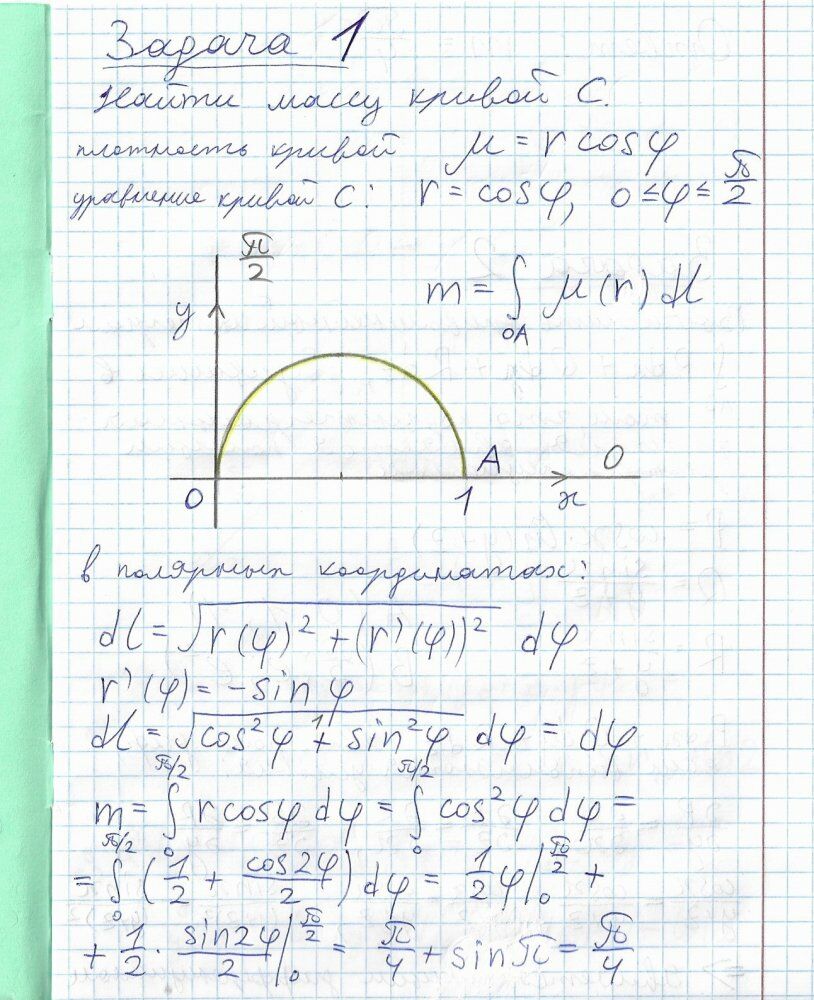 Задача 1
Найти массу кривой С.
плотность кривой μ = r cosφ
уравнение кривой С: r = cosφ, 0 ≤ φ ≤ π/2
π/2
y
m = ∫_{OA} μ(r) dl
A
0
0
1
x
в полярных координатах:
dl = √(r(φ)² + (r'(φ))²) dφ
r'(φ) = -sinφ
dl = √(cos²φ + sin²φ) dφ = dφ
1
m = ∫_0^{π/2} r cosφ dφ = ∫_0^{π/2} cos²φ dφ =
= ∫_0^{π/2} (1/2 + cos2φ/2) dφ = 1/2 φ|_0^{π/2} +
+ 1/2 · sin2φ/2 |_0^{π/2} = π/4 + sinπ = π/4